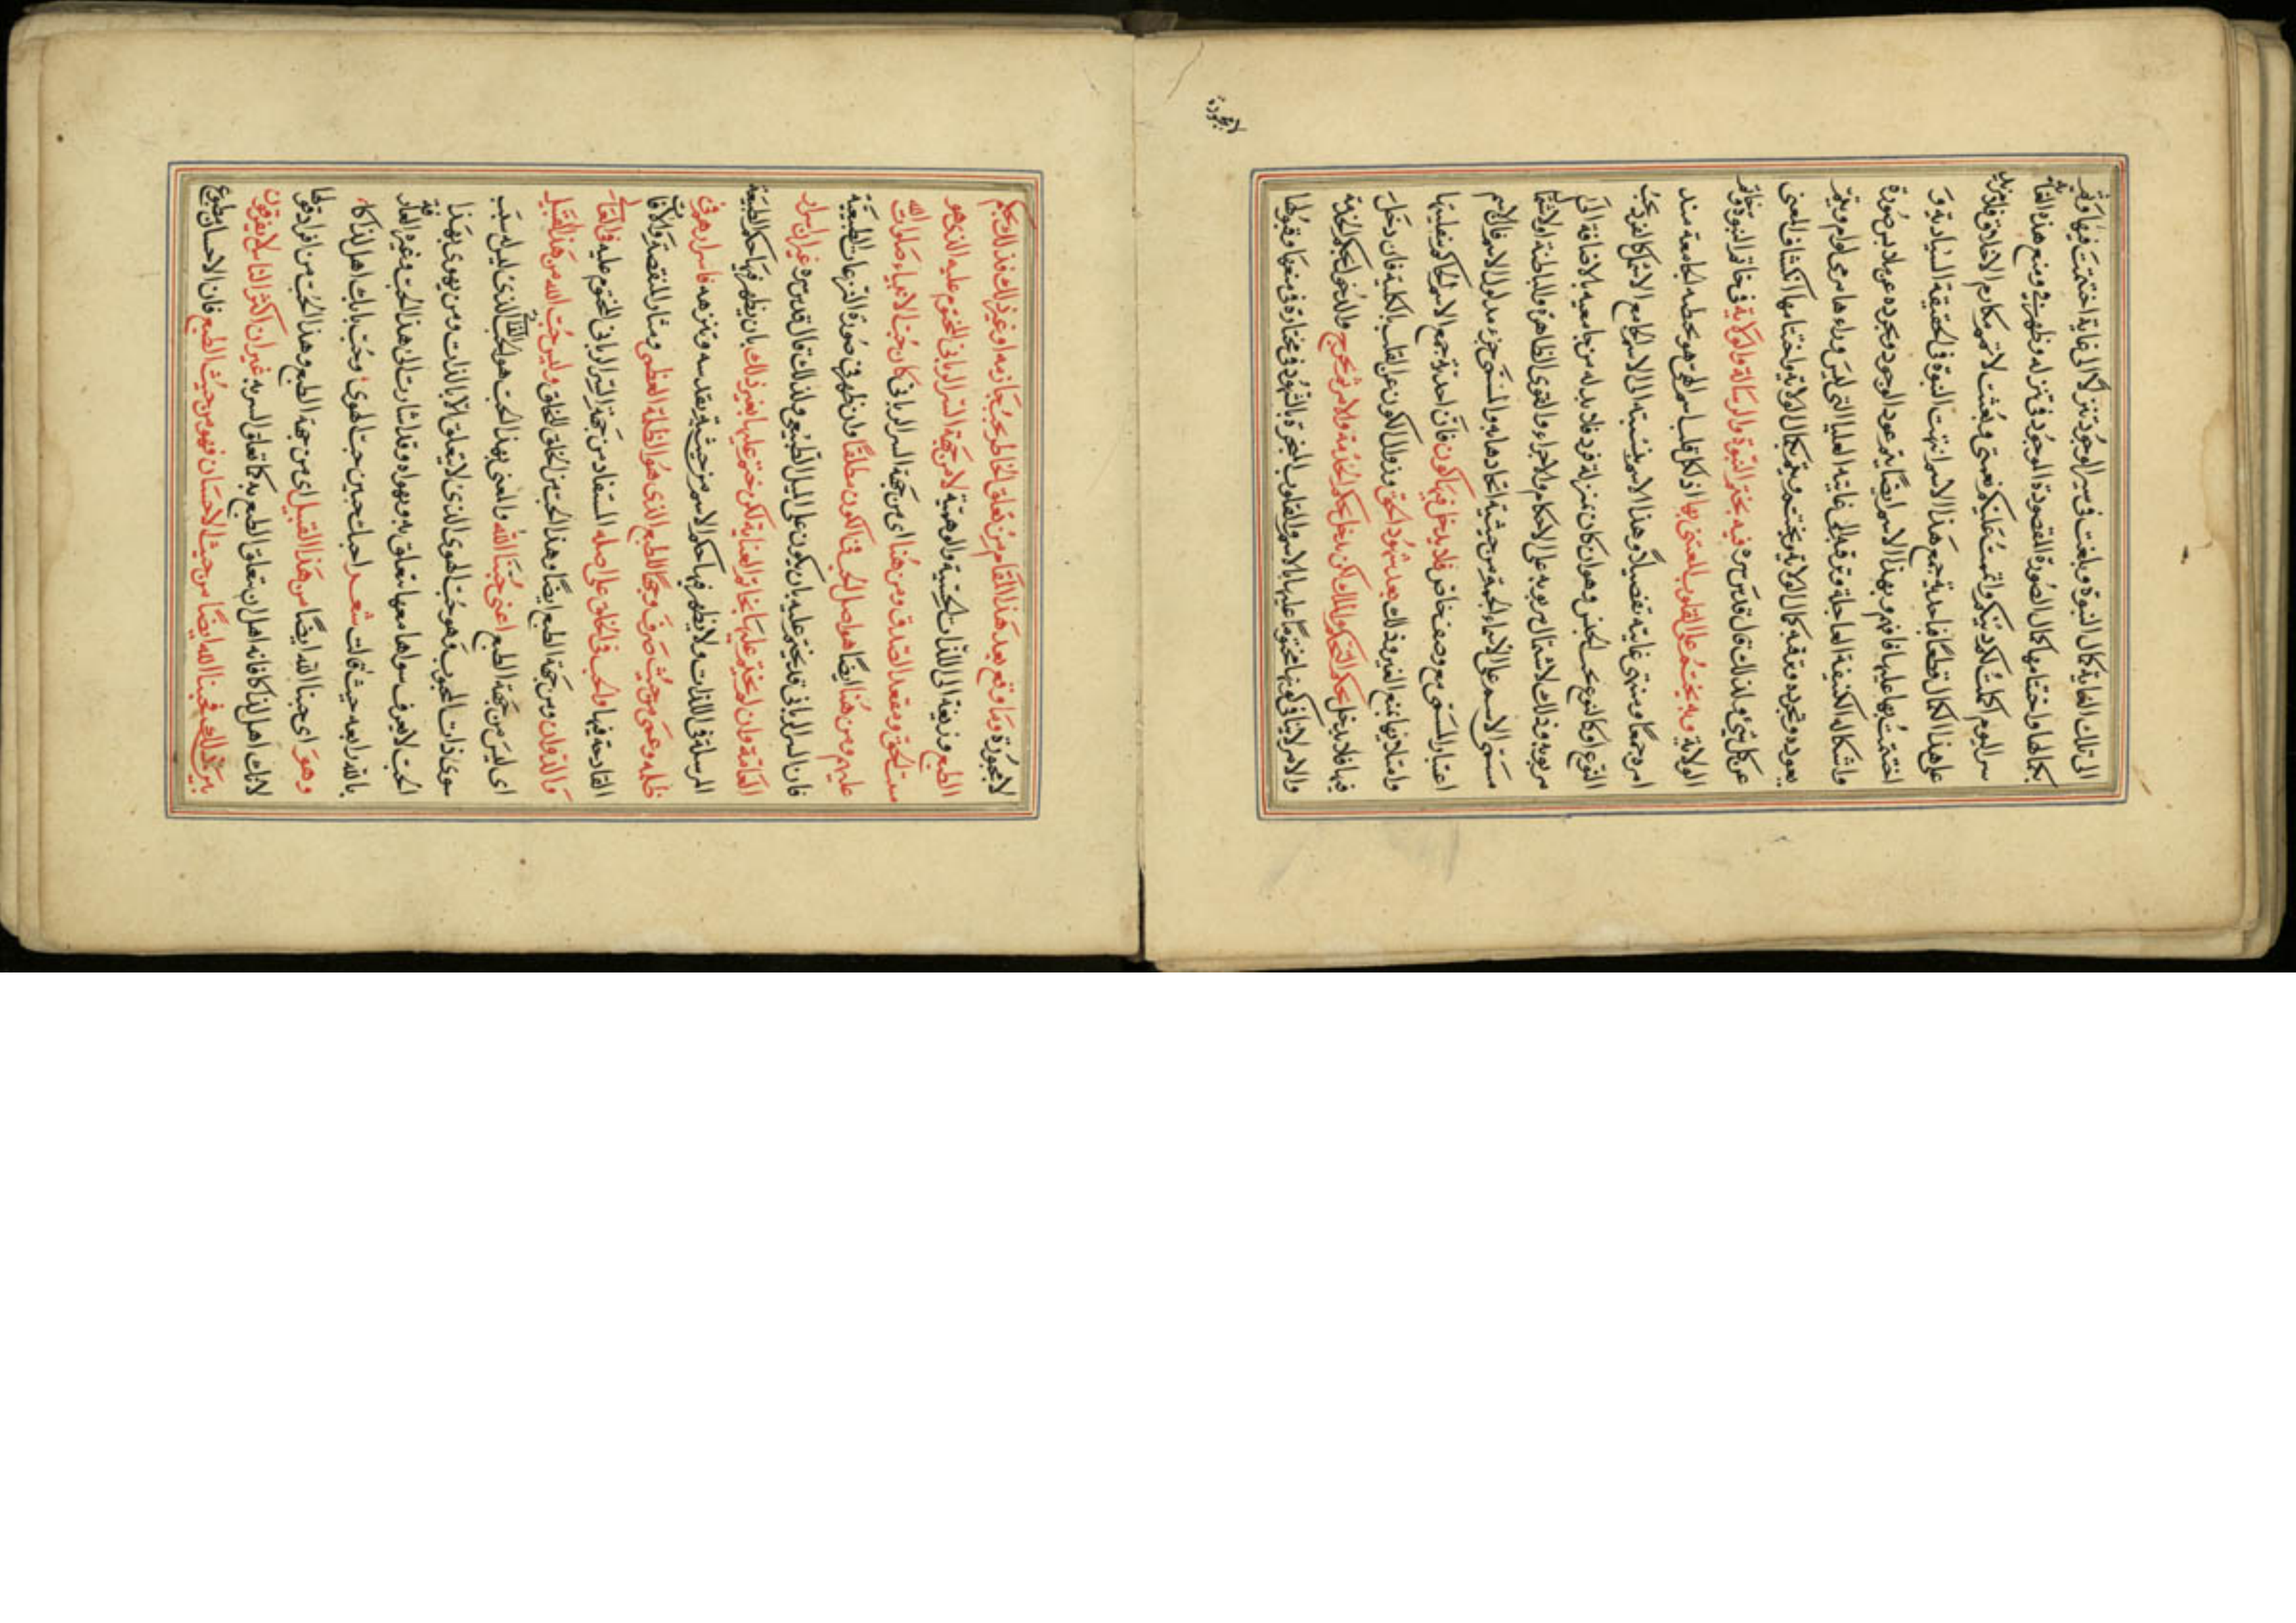 الى تلك الغاية كمال النبوة وبلغت فى سير الوجود تنزلا الى غاية اختتمت فيها وتمت
بكمالها واختتامها كمال الصورة المقصودة الوجود فى تنزله وظهوره ومنع هذه
سر اليوم اكملت لكم دينكم واتممت عليكم نعمتى وبعثت لاتمم مكارم الاخلاق فلم يزد
على هذا الكمال قط احدية جمع هذا الاسم انتهت النبوة فى الحقيقة السيادية و
اختتمت بها عليها فافهم وبهذا الاسم ايضا يتم عود الوجود وتجرده عن ملابس صورة
واشكاله الكثيفة العاجلة وترقيه الى غايته العليا التى ليس وراءها مرمى لرام ويتم
بعوده وتجرده وترقيه كمال الولاية ويختم ويتم بكمال الولاية واختتامها انكشاف المعنى
عن كل شئ ولذلك قال قدس سره فبه يختم النبوة والرسالة والولاية فى خاتم النبوة وخاتم
الولاية وبه يختم على القلوب المعتنى بها اذ لكل قلب اسم الهى هو الجامعة
امره جمعا ومنتهى غايته تفصيلا وهذا الاسم بنسبته الى الاسم الجامع الاشمل كالفرد تحت
النوع او كالنوع تحت الجنس وهو ان كان بمنزلة فرد فلا بد له من جامعيه بالاضافة الى
مربوبه وذلك لاشتمال مربوبه على الاحكام والاجزاء والقوى الظاهرة والباطنة
مسمى الاسم على الاسماء الجمة من حيثية اتحادها به والمسمى جزء مدلول الاسم فالاسم
اعتبار المسمى مع وصف خاص فلا يدخل فيها كون فان احدية جمع الاسم الحاكم بغلبتها
وامتلائها يمنع الغير وذلك بعد شهود الحق وزوال الكون عن القلب بالكلية فان دخل
فيها فلا يدخل بحكم التحكم والملك لكن يدخل بحكم الخدمة والامر ثم يخرج والدخول بحكم الخدمة
والامر لا ينافى كونها مختوما عليها بالاسم والقلوب المخبرة بالشهود فى مختارة فى منعها وقبولها
وما وقع بعد هذا المقام من تعلق الخاطر بحب جارية او غير ذلك فذلك بحكم
الطبع ونزغية الى اللذات الحسية والوهمية لا من جهة السر الربانى المختوم عليه الذى هو
مقت الحق ومقعد الصدق ومن هنا اى من جهة السر الربانى كان حب الانبياء صلوات الله
عليهم ومن هنا ايضا هو اصل الحب فى الكون مطلقا وان ظهر فى صورة النزغات الطبيعية
فان السر الربانى قد يختم عليه بان يكون على الميل الطبيعى ولذلك قال قدس سره غير ان اسرار
العامة وان لم يختم عليها بخاتم العناية لكن ختم عليها بغير ذلك بان يظهر فيها حكم الطبيعة
المرسلة فى اللذات ولا يظهر فيها حكم الاسم من حيثية تقدسه وتنزهه فاسرارهم فى
ظلمه وعمى من حيث صرف وجهها للطبع الذى هو الظلمة العظمى ومثار المنقصة والافات
القادحة فيها والحب فى الخلق على اصله المستفاد من جهة السر الربانى المختوم عليه فى القائم
والذوان ومن جهة الطبع ايضا وهذا الحب من الخلق للخلق وليس حب الله من هذا القبيل
اى ليس من جهة الطبع اعنى حبنا لله والمعنى بهذا الحب هو الحب لله الذى ليس له سبب
سوى ذات المحبوب وهو حب الهوى الذى لا يتعلق الا بالذات ومن يهوى بهذا
الحب لا يعرف سواها معها متعلق به ويهواه وقد اشارت الى هذا الحب وغيره العارفة
بالله رابعه حيث قالت شعر احبك حبين حب الهوى وحب بانك اهل لذاكا
وهو اى حبنا لله ايضا من هذا القبيل اى من جهة الطبع وهذا الحب من افراد قولها
لانك اهل لذاكا فانه اهل ان يتعلق الطبع به كما تعلق السر به غير ان اكثر الناس لا يفرقون
بين ذلك فحبنا لله ايضا من حيث الاحسان فهو من حيث الطبع فان الاحسان مطبوع